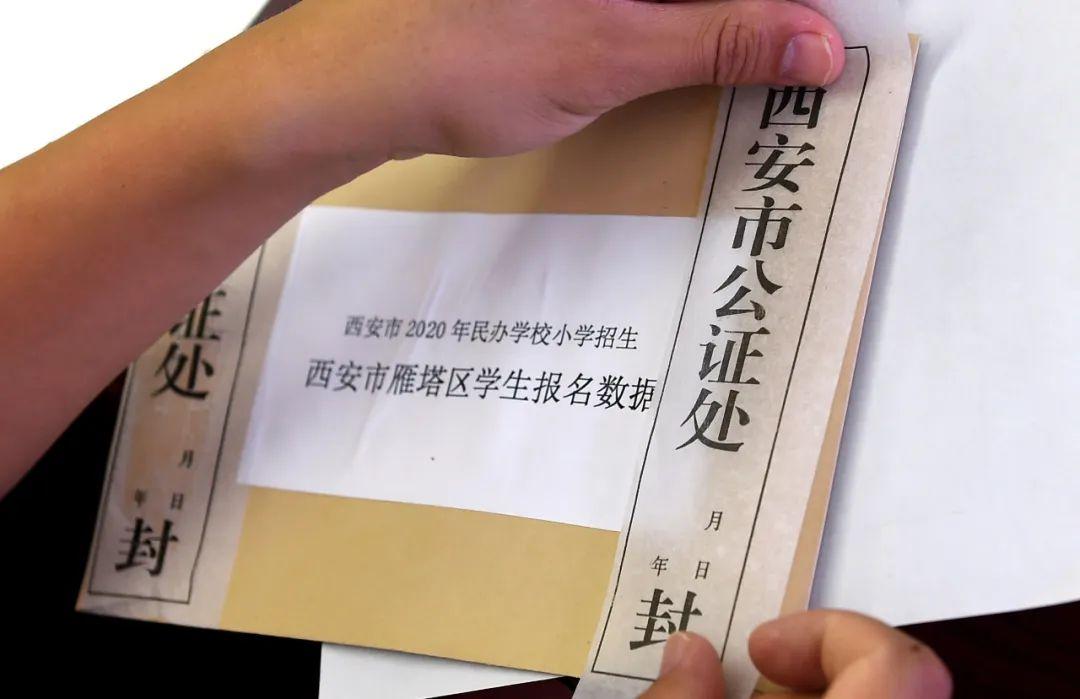 证处
月
年 日
封
西安市2020年民办学校小学招生
西安市雁塔区学生报名数据
西安市公证处
月
年 日
封